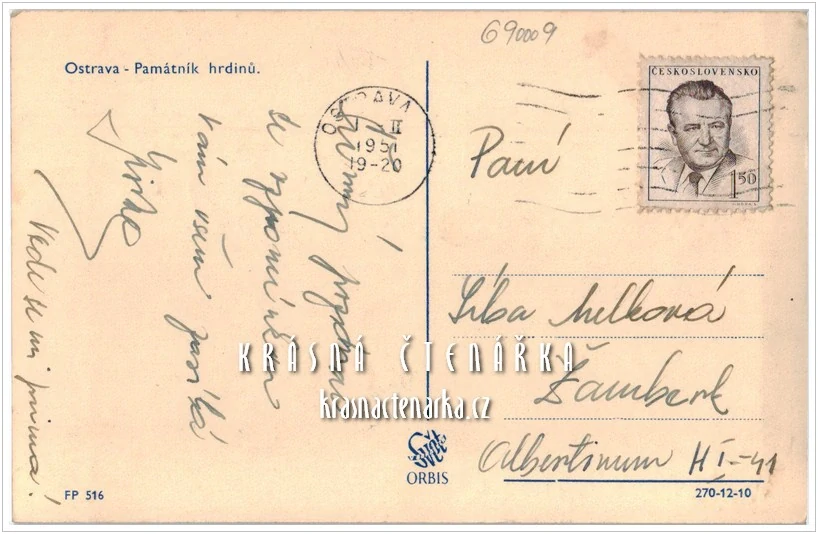 690009
Ostrava - Památník hrdinů.
ČESKOSLOVENSKO
1.50
OSTRAVA
II
1951
19-20
Paní
pozdrav
se vzpomínkou
Vám všem zasílá
Vede se mi prima!
Líba Melková
Žamberk
Albertinum H I-41
KRÁSNÁ ČTENÁŘKA
krasnactenarka.cz
Svět
ORBIS
FP 516
270-12-10